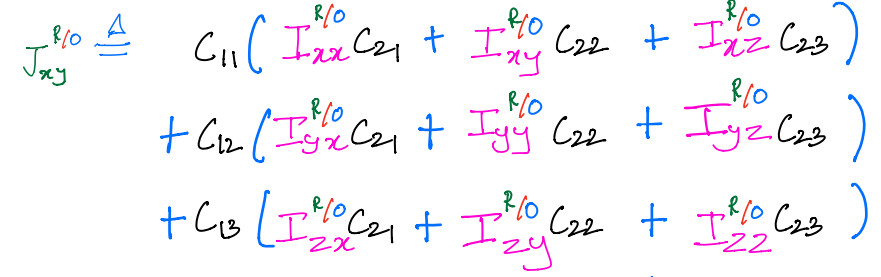 J_{xy}^{R/O} ≜ C_{11} ( I_{xx}^{R/O} C_{21} + I_{xy}^{R/O} C_{22} + I_{xz}^{R/O} C_{23} )
+ C_{12} ( I_{yx}^{R/O} C_{21} + I_{yy}^{R/O} C_{22} + I_{yz}^{R/O} C_{23} )
+ C_{13} ( I_{zx}^{R/O} C_{21} + I_{zy}^{R/O} C_{22} + I_{zz}^{R/O} C_{23} )